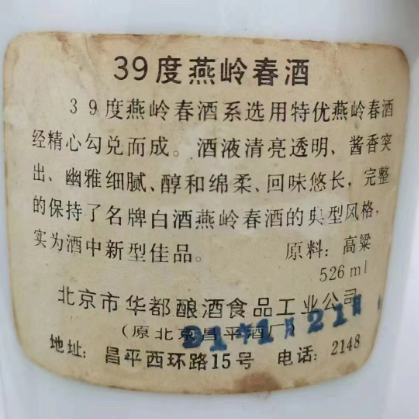 39度燕岭春酒
39度燕岭春酒系选用特优燕岭春酒
经精心勾兑而成。酒液清亮透明，酱香突
出、幽雅细腻、醇和绵柔、回味悠长，完整
的保持了名牌白酒燕岭春酒的典型风格，
实为酒中新型佳品。 原料：高粱
526ml
北京市华都酿酒食品工业公司
（原北京昌平酒厂）
地址：昌平西环路15号 电话：2148